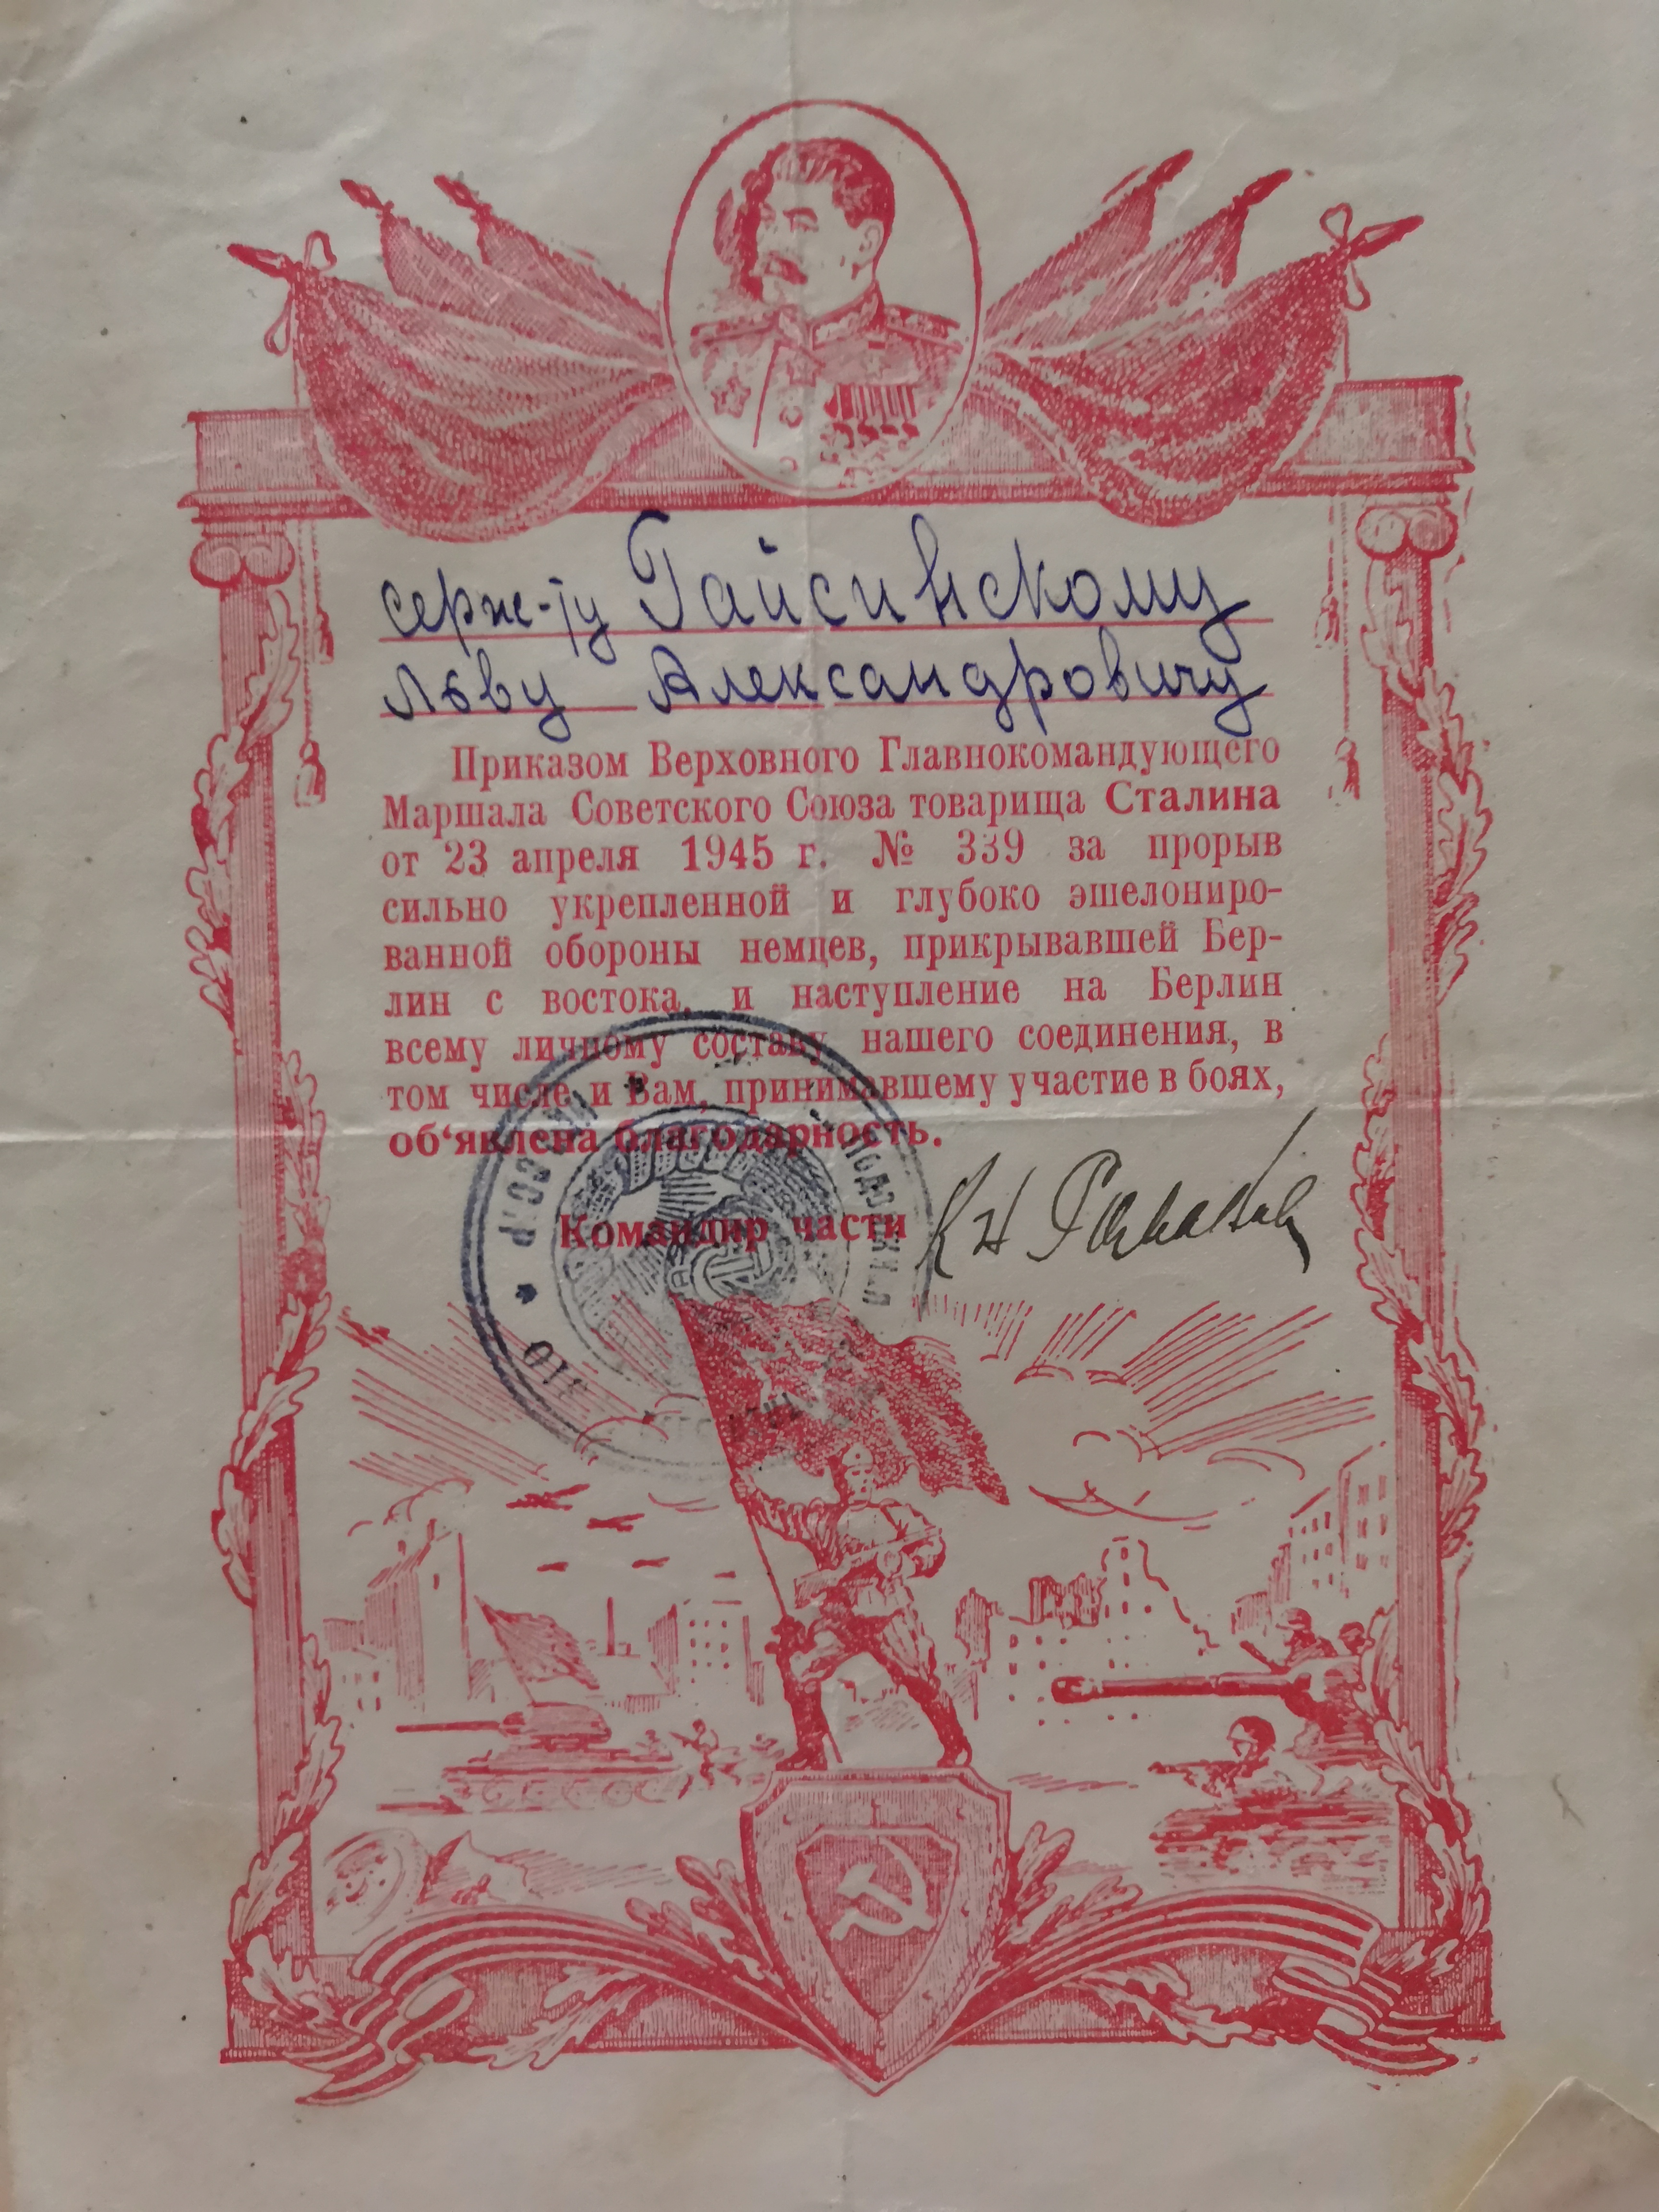 серж-ту Гайсинскому
Льву Александровичу
Приказом Верховного Главнокомандующего
Маршала Советского Союза товарища Сталина
от 23 апреля 1945 г. № 339 за прорыв
сильно укрепленной и глубоко эшелониро-
ванной обороны немцев, прикрывавшей Бер-
лин с востока, и наступление на Берлин
всему личному составу нашего соединения, в
том числе и Вам, принимавшему участие в боях,
об‘явлена благодарность.
Командир части
СССР